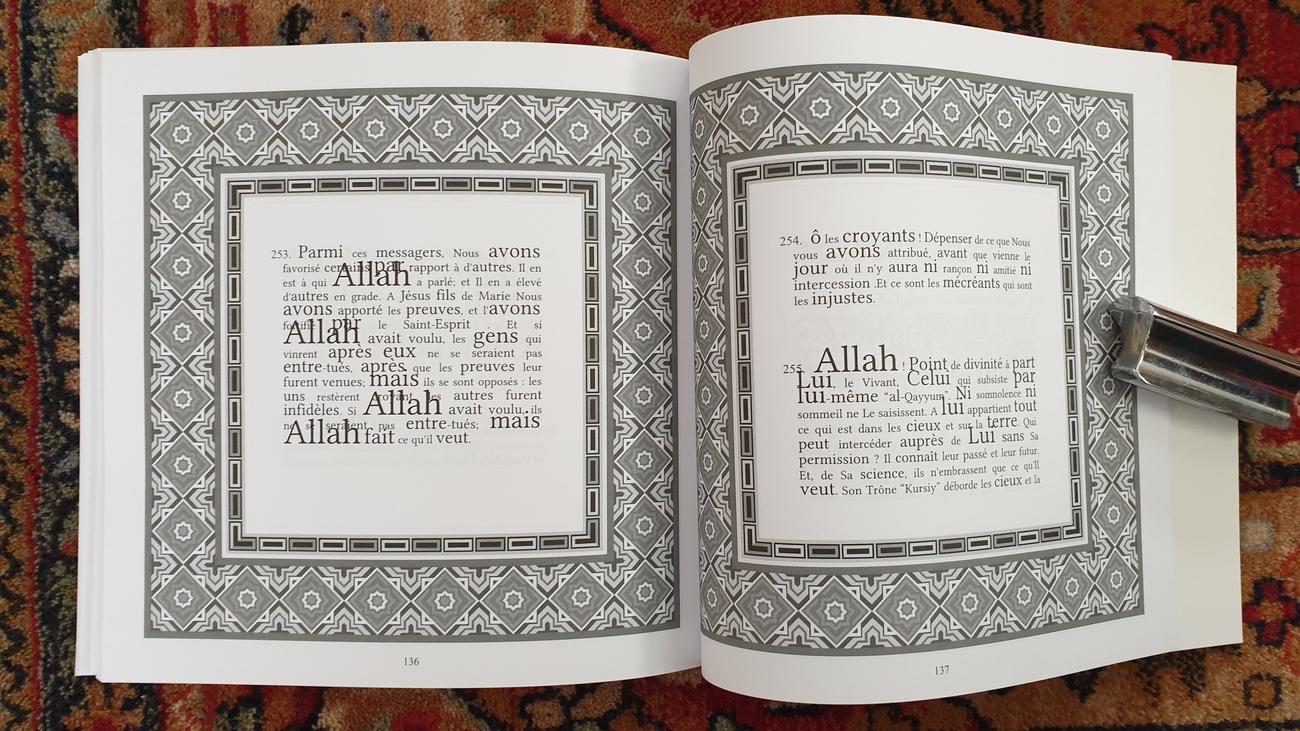 253. Parmi ces messagers, Nous avons
favorisé certains par rapport à d'autres. Il en
est à qui Allah a parlé; et Il en a élevé
d'autres en grade. A Jésus fils de Marie Nous
avons apporté les preuves, et l'avons
fortifié par le Saint-Esprit . Et si
Allah avait voulu, les gens qui
vinrent après eux ne se seraient pas
entre-tués, après que les preuves leur
furent venues; mais ils se sont opposés : les
uns restèrent croyant, les autres furent
infidèles. Si Allah avait voulu, ils
ne se seraient pas entre-tués; mais
Allah fait ce qu'il veut.
136
254. Ô les croyants ! Dépenser de ce que Nous
vous avons attribué, avant que vienne le
jour où il n'y aura ni rançon ni amitié ni
intercession .Et ce sont les mécréants qui sont
les injustes.
255. Allah ! Point de divinité à part
Lui, le Vivant, Celui qui subsiste par
lui-même “al-Qayyum”. Ni somnolence ni
sommeil ne Le saisissent. A lui appartient tout
ce qui est dans les cieux et sur la terre. Qui
peut intercéder auprès de Lui sans Sa
permission ? Il connaît leur passé et leur futur.
Et, de Sa science, ils n'embrassent que ce qu'Il
veut. Son Trône “Kursiy” déborde les cieux et la
137